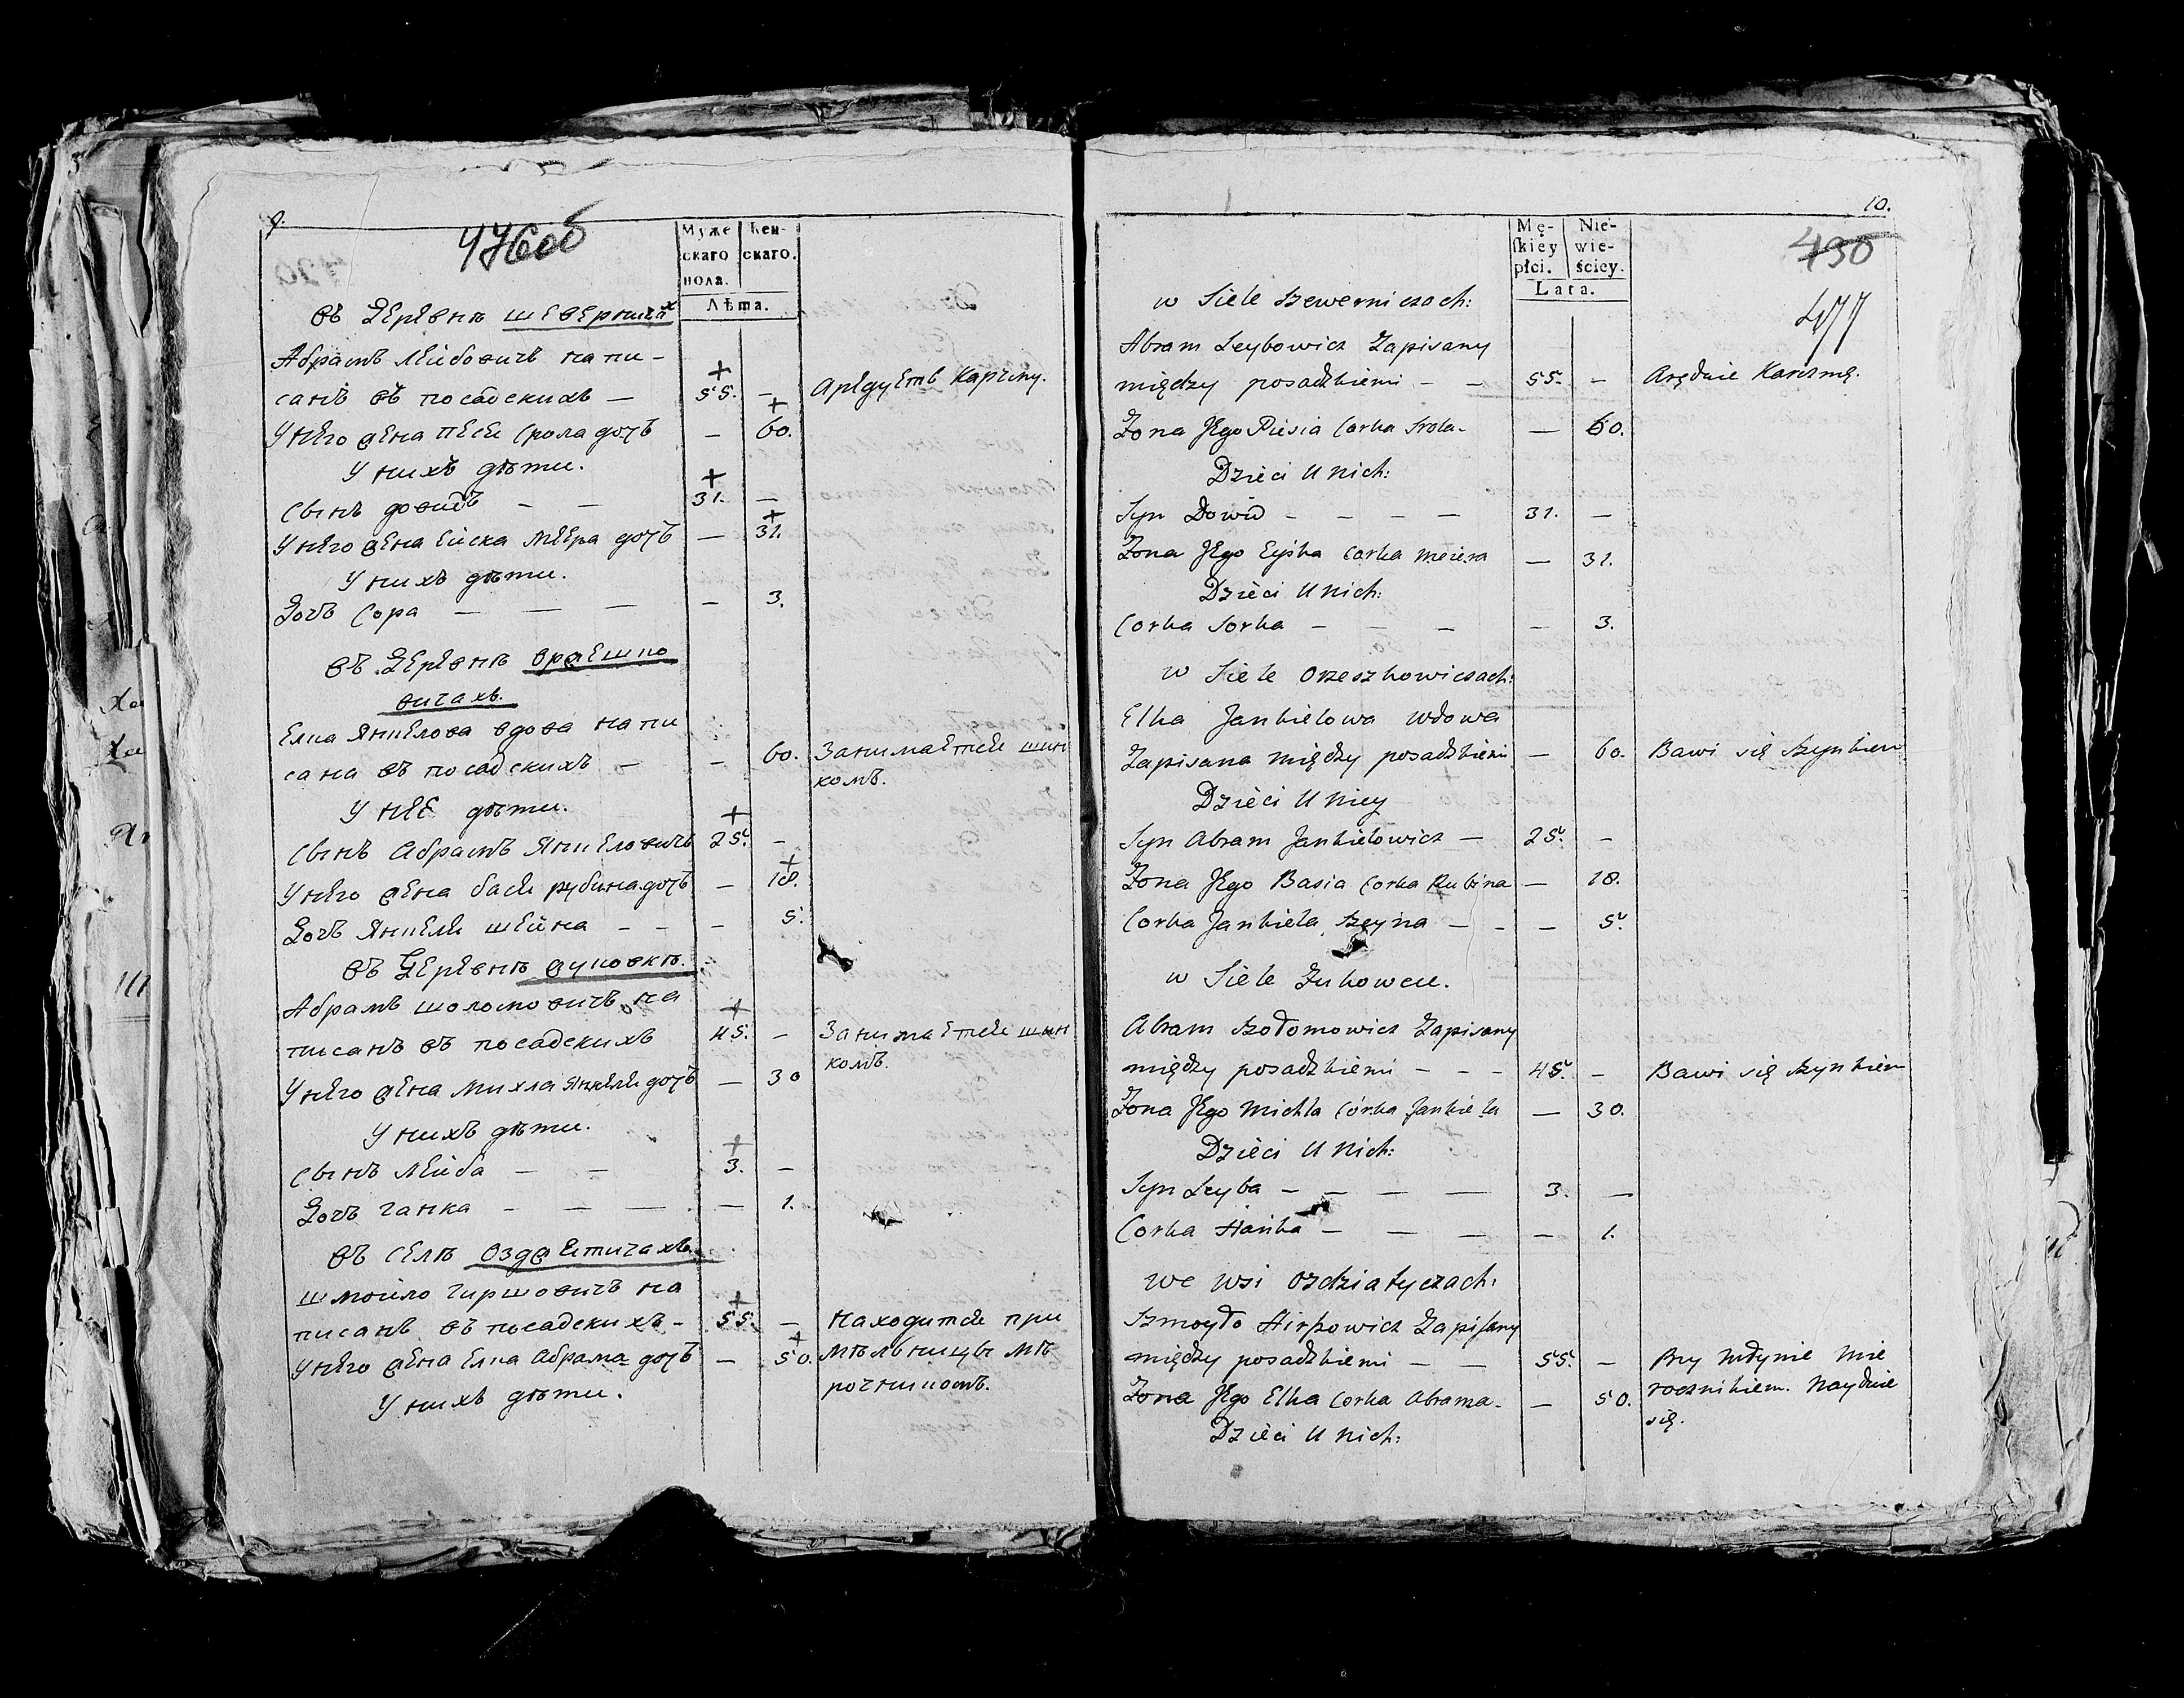 9.
476 об
Муже
скаго
пола.
Жен-
скаго.
Лѣта.
Въ Деревнѣ Шеверничахъ
Абрамъ Лейбовичъ напи-
санъ въ посадскихъ — 55. — Арядуетъ Карчму.
У него жена Песя Срола дочь — 60.
У нихъ дѣти.
Сынъ Довидъ — — 31. —
У него жена Ейска Меера дочь — 31.
У нихъ дѣти.
Дочь Сора — — — — 3.
Въ Деревнѣ Орѣшко
вичахъ.
Елка Янкелова вдова напи
сана въ посадскихъ — — 60. Занимается шин
комъ.
У неё дѣти.
Сынъ Абрамъ Янкеловичъ 25. —
У него жена Бася Рубина дочь — 18.
Дочь Янкеля Шейна — — — 5.
Въ Деревнѣ Жуковкѣ.
Абрамъ Шоломовичъ на
писанъ въ посадскихъ 45. — Занимается шин
комъ.
У него жена Михля Янкеля дочь — 30
У нихъ дѣти.
Сынъ Лейба — — 3. —
Дочь Ганка — — — — 1.
Въ Селѣ Оздятичахъ.
Шмойло Гиршовичъ на
писанъ въ посадскихъ — 55. — Находится при
У него жена Елка Абрама дочь — 50. мѣльницы мѣ
рочникомъ.
У нихъ дѣти.
10.
Mę-
skiey
płci.
Nie-
wie-
ściey.
Lata.
430
477
w Siele Szewerniczach:
Abram Leybowicz Zapisany
między posadzkiemi — — 55. — Aręduie Karczmę.
Żona Jego Piesia Corka Srola — — 60.
Dzieci U Nich:
Syn Dowid — — — — 31. —
Żona Jego Eyska Corka Meiera — 31.
Dzieci U Nich:
Corka Sorka — — — — 3.
w Siele Orzeszkowiczach:
Elka Jankielowa Wdowa
Zapisana między posadzkiemi — 60. Bawi się szynkiem
Dzieci U Niey
Syn Abram Jankielowicz — 25. —
Żona Jego Basia Corka Rubina — 18.
Corka Jankiela, Szeyna — — — 5.
w Siele Zukowcu.
Abram Szołomowicz Zapisany
między posadzkiemi — — — 45. — Bawi się szynkiem
Żona Jego Michla Córka Jankiela — 30.
Dzieci U Nich:
Syn Leyba — — — — 3. —
Corka Hańka — — — — 1.
we Wsi Ozdziatyczach:
Szmoyło Hirszowicz Zapisany
między posadzkiemi — — 55. — Przy Młynie Mie
Żona Jego Elka Corka Abrama — — 50. rocznikiem. Nayduie
się.
Dzieci U Nich: